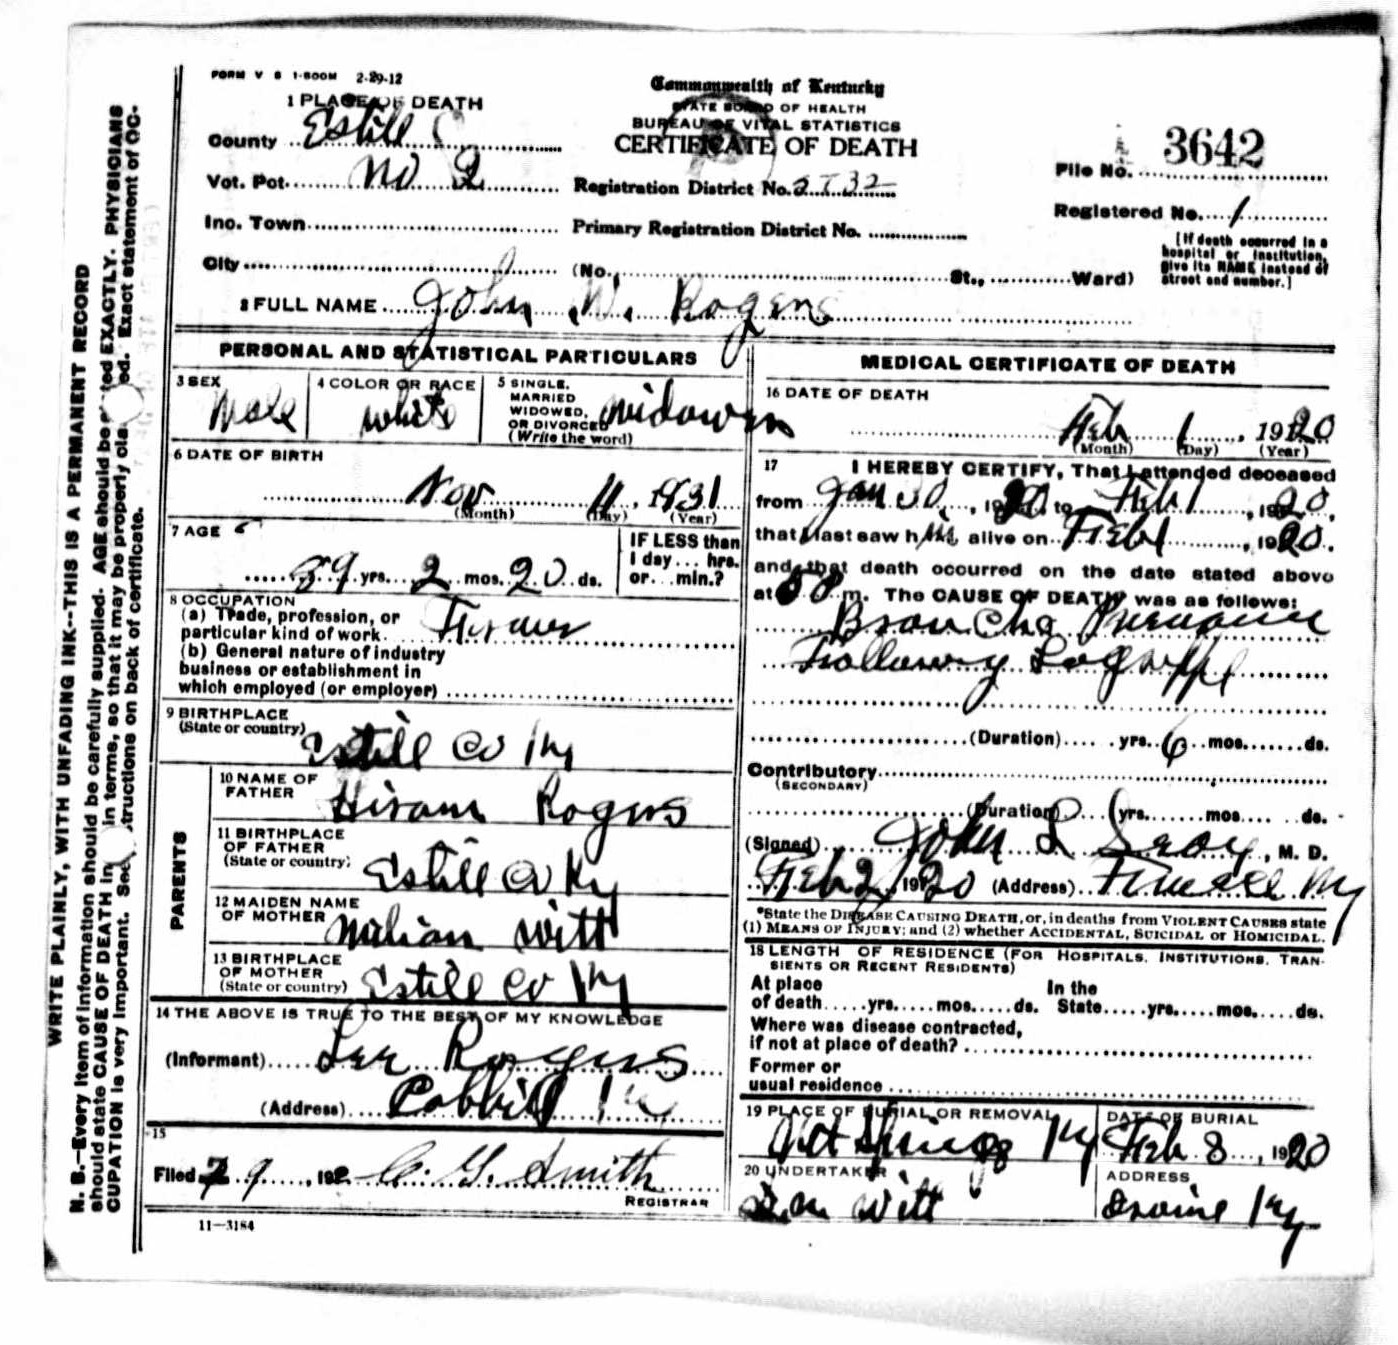 FORM V S 1-500M 2-29-12
Commonwealth of Kentucky
STATE BOARD OF HEALTH
BUREAU OF VITAL STATISTICS
CERTIFICATE OF DEATH
1 PLACE OF DEATH
County Estill
Vot. Pct. No 2
Inc. Town
City
Registration District No. 2732
Primary Registration District No.
(No. St., Ward)
File No. 3642
Registered No. 1
[If death occurred in a
hospital or institution,
give its NAME instead of
street and number.]
2 FULL NAME John W. Rogers
PERSONAL AND STATISTICAL PARTICULARS
3 SEX
Male
4 COLOR OR RACE
white
5 SINGLE,
MARRIED
WIDOWED,
OR DIVORCED
(Write the word)
widower
6 DATE OF BIRTH
Nov 11, 1831
(Month) (Day) (Year)
7 AGE
89 yrs. 2 mos. 20 ds.
IF LESS than
1 day... hrs.
or... min.?
8 OCCUPATION
(a) Trade, profession, or
particular kind of work
(b) General nature of industry
business or establishment in
which employed (or employer)
9 BIRTHPLACE
(State or country)
Estill Co Ky
PARENTS
10 NAME OF
FATHER
Hiram Rogers
11 BIRTHPLACE
OF FATHER
(State or country)
Estill Co Ky
12 MAIDEN NAME
OF MOTHER
Witt
13 BIRTHPLACE
OF MOTHER
(State or country)
Estill Co Ky
14 THE ABOVE IS TRUE TO THE BEST OF MY KNOWLEDGE
(Informant) Lee Rogers
(Address)
15
Filed 2 9, 192 C. G. Smith
REGISTRAR
11-3184
MEDICAL CERTIFICATE OF DEATH
16 DATE OF DEATH
Feb 1, 1920
(Month) (Day) (Year)
17 I HEREBY CERTIFY, That I attended deceased
from Jan 30, 1920, to Feb 1, 1920
that I last saw him alive on Feb 1, 1920.
and that death occurred on the date stated above
at m. The CAUSE OF DEATH was as follows:
Broncho
(Duration) yrs. 6 mos. ds.
Contributory
(SECONDARY)
(Duration) yrs. mos. ds.
(Signed) John L , M. D.
Feb 2, 1920 (Address) Ky
*State the DISEASE CAUSING DEATH, or, in deaths from VIOLENT CAUSES state
(1) MEANS OF INJURY; and (2) whether ACCIDENTAL, SUICIDAL or HOMICIDAL.
18 LENGTH OF RESIDENCE (FOR HOSPITALS, INSTITUTIONS, TRAN-
SIENTS OR RECENT RESIDENTS)
At place In the
of death yrs. mos. ds. State yrs. mos. ds.
Where was disease contracted,
if not at place of death?
Former or
usual residence
19 PLACE OF BURIAL OR REMOVAL
Ky
DATE OF BURIAL
Feb 8, 1920
20 UNDERTAKER
Witt
ADDRESS
Irvine Ky
WRITE PLAINLY, WITH UNFADING INK--THIS IS A PERMANENT RECORD
N. B.--Every item of information should be carefully supplied. AGE should be stated EXACTLY. PHYSICIANS
should state CAUSE OF DEATH in terms, so that it may be properly cla ed. Exact statement of OC-
CUPATION is very important. See structions on back of certificate.